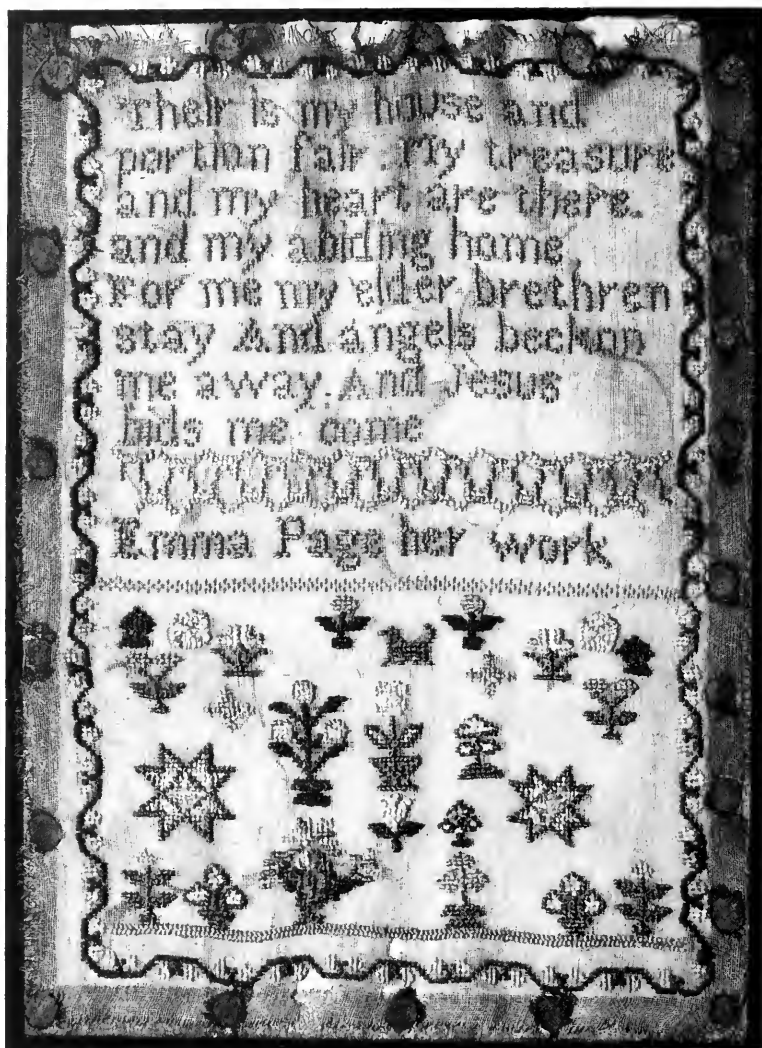 Their is my house and
portion fair. My treasure
and my heart are there.
and my abiding home
For me my elder brethren
stay And angels beckon
me away. And Jesus
bids me come
Emma Page her work